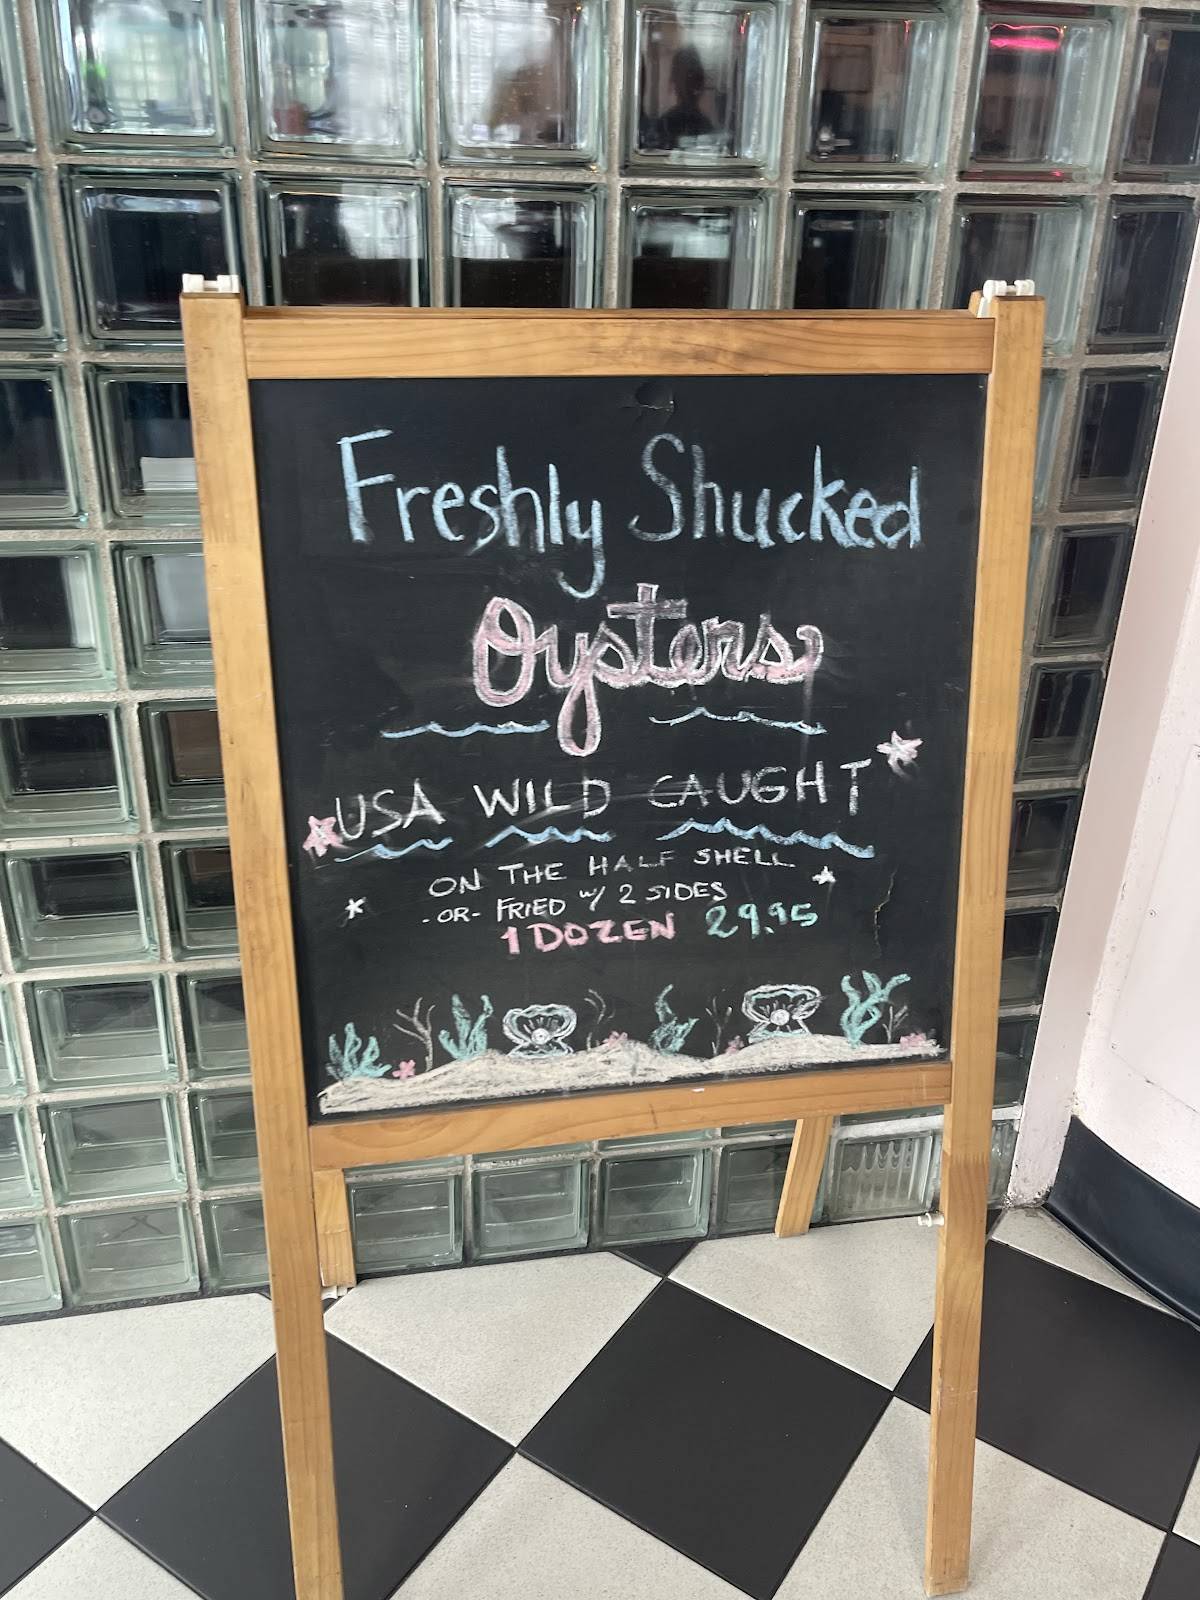 Freshly Shucked
Oysters
USA WILD CAUGHT
ON THE HALF SHELL
-OR- FRIED w/ 2 SIDES
1 DOZEN 29.95